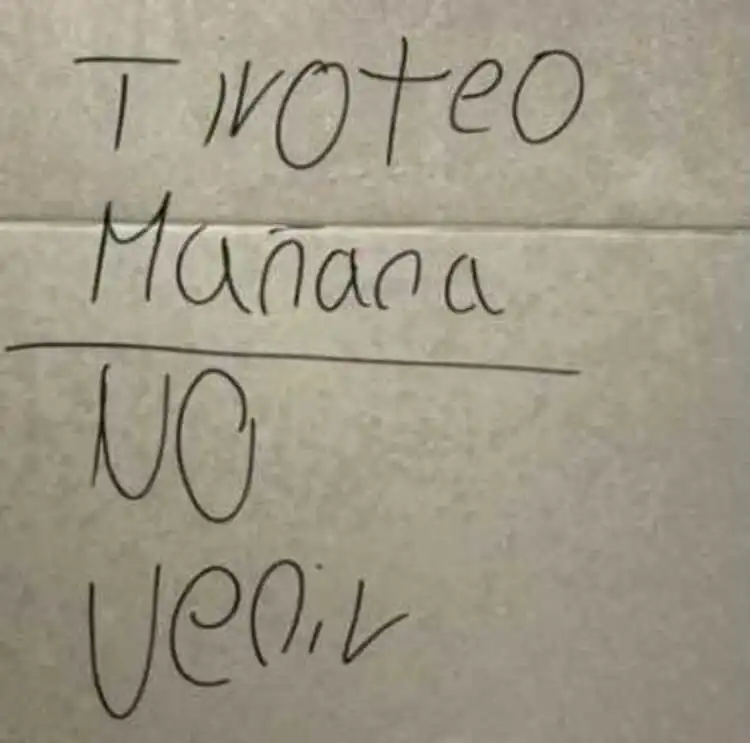 Tiroteo
Mañana
NO
Venir